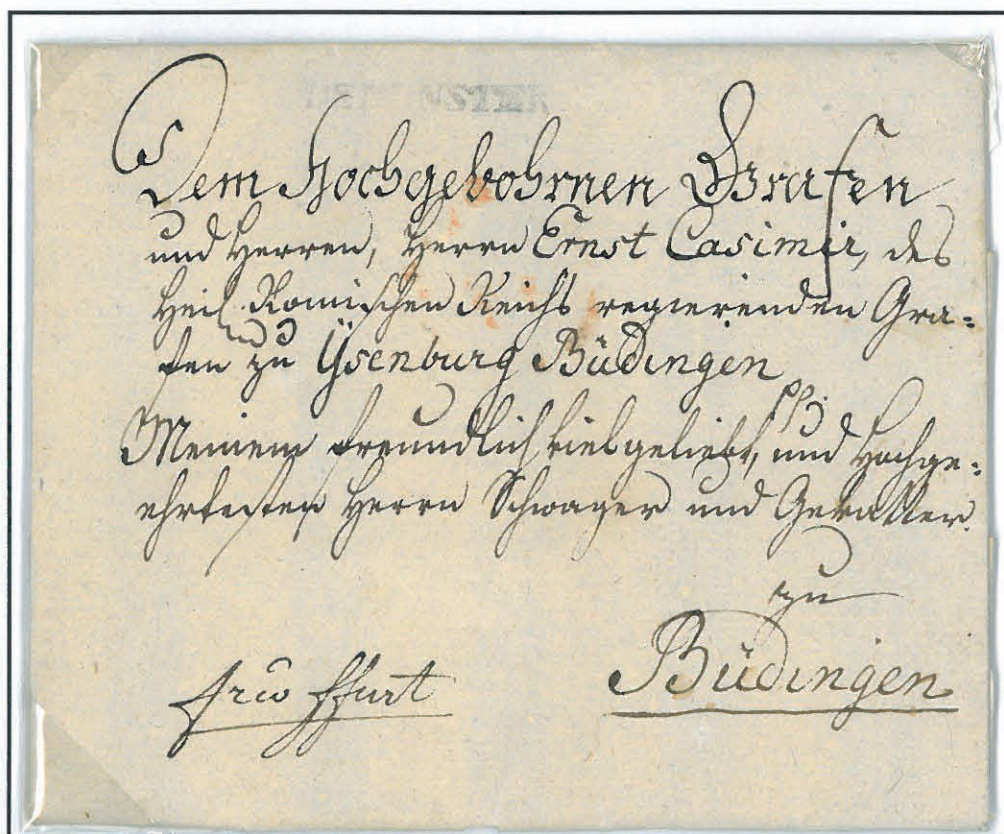 Dem Hochgebohrnen Grafen
und Herren, Herrn Ernst Casimir, des
Heil. Römischen Reichs regierenden Gra=
fen zu Ysenburg und Büdingen pp.
Meinem freundlich vielgeliebt, und Hochge=
ehrtesten Herrn Schwager und Gevatter.
zu
Büdingen
frco ffurt